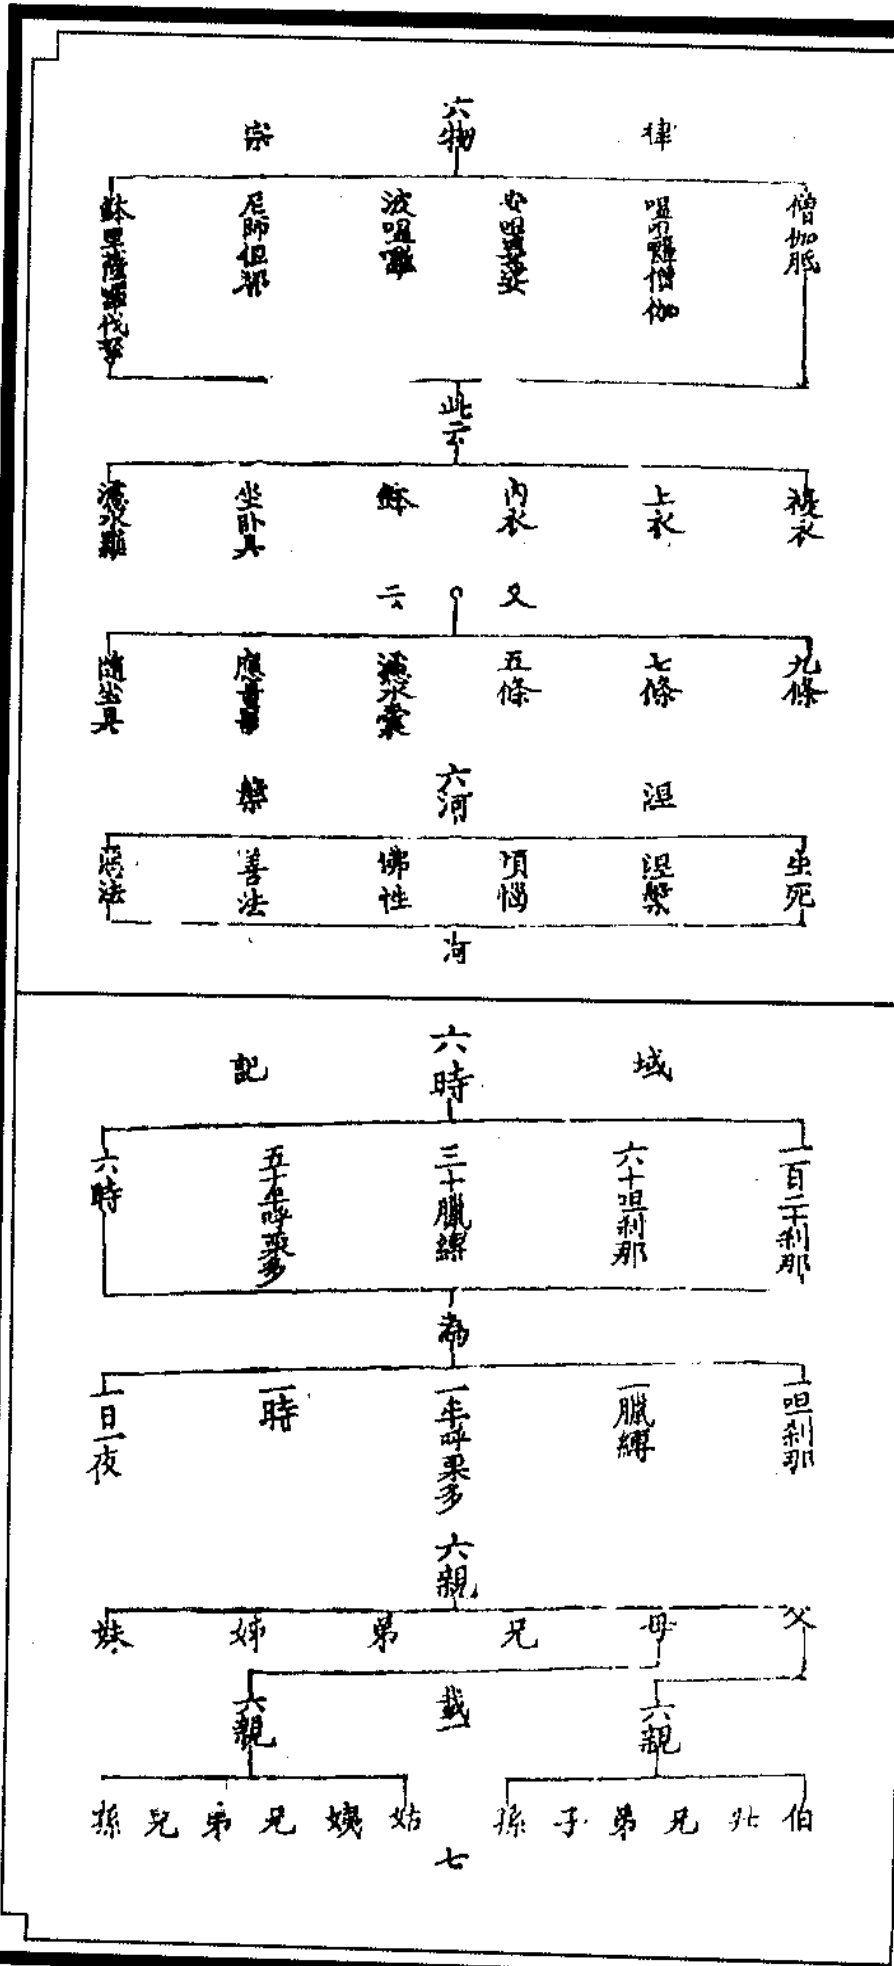 律 六物 宗
僧伽胝
嗢呾羅僧伽
安呾婆娑
波呾羅
尼師但那
鉢里薩羅伐拏
此云
複衣
上衣
內衣
鉢
坐卧具
濾水羅
又云
九條
七條
五條
濾水囊
應量器
隨坐具
涅 六河 槃
生死
涅槃
煩惱
佛性
善法
惡法
河
域 六時 記
一百二十刹那
六十呾刹那
三十臘縛
五十牟呼栗多
六時
為
一呾刹那
一臘縛
一牟呼栗多
一時
一日一夜
六親
父 母 兄 弟 姊 妹
六親 六親
伯 兄 弟 子 孫
姑 姨 兄 弟 兒 孫
七